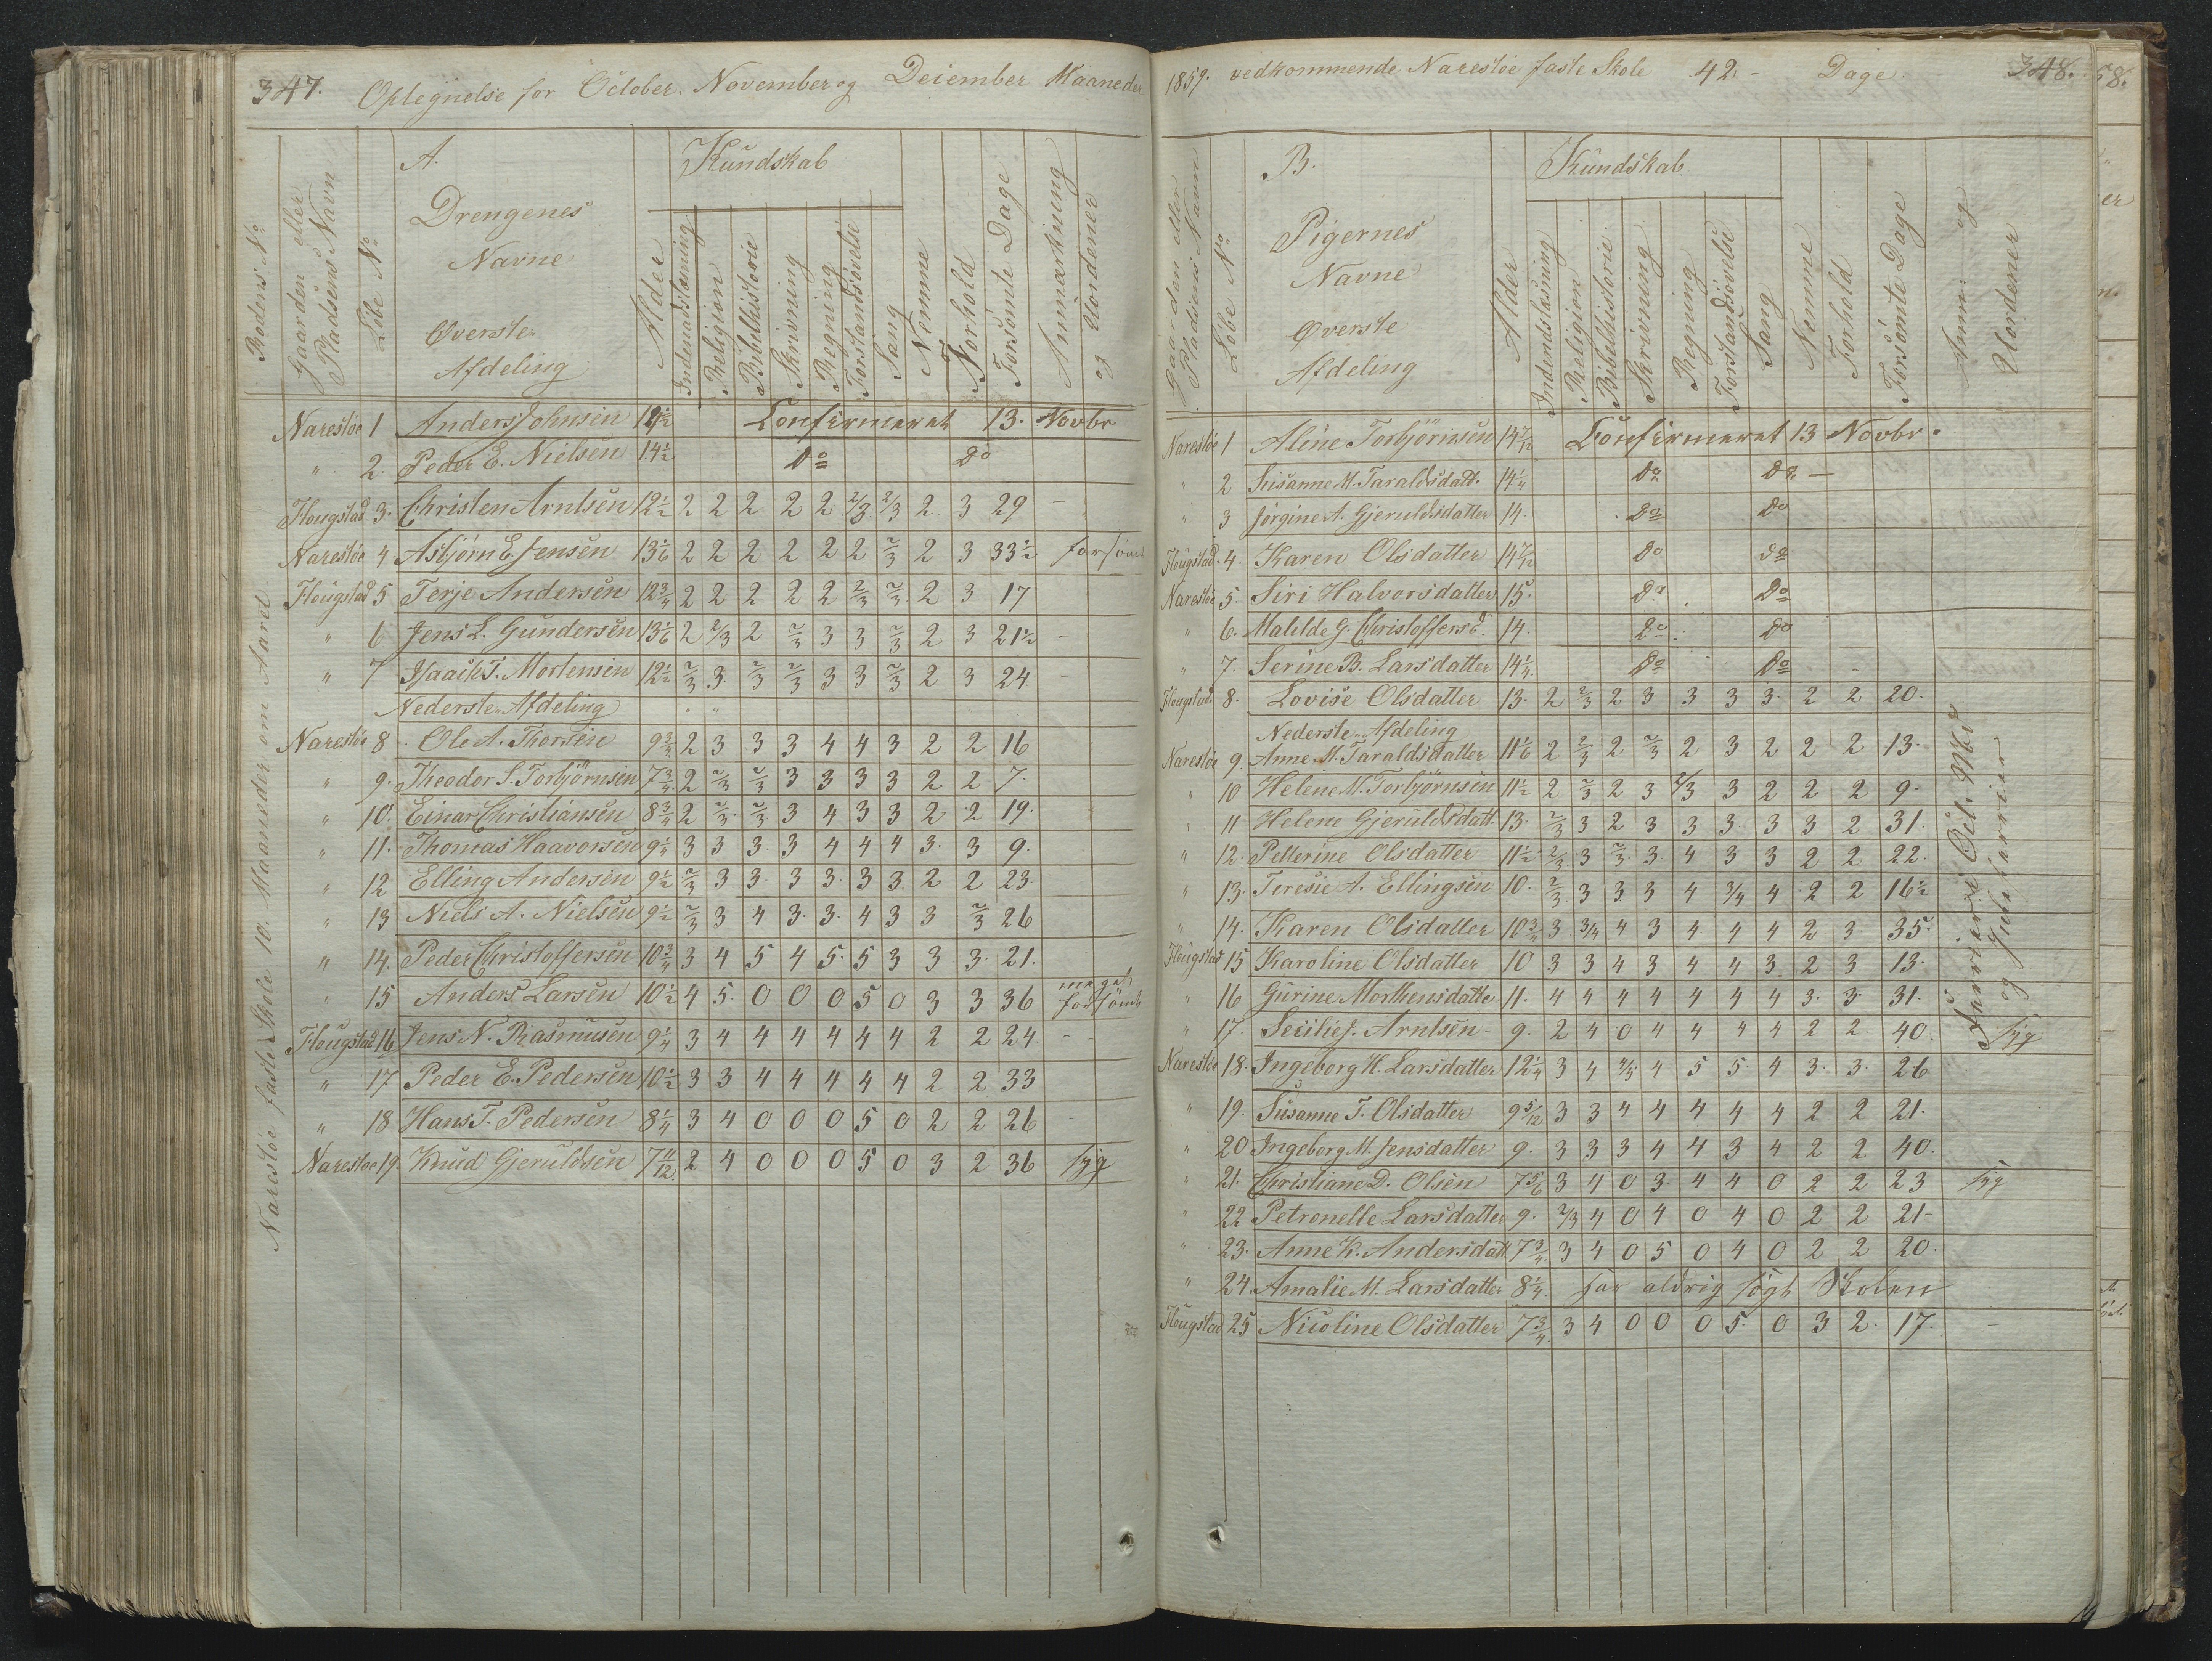 347. Optegnelse for October. November og December Maaneder
Rodens No
Gaarden eller Pladsens Navn
Löbe No
A.
Drengenes
Navne
Øverste
Afdeling
Alder
Kundskab
Indenadslæsning
Religion
Bibelhistorie
Skrivning
Regning
Forstandsövelse
Sang
Nemme
Forhold
Forsömte Dage
Anmærkning og Uordener
Narestöe 1 Anders Johnsen Confirmeret 13. Novbr
" 2. Peder E. Nielsen 14½ do do
Flougstad 3. Christen Arntsen 12½ 2 2 2 2 2 2/3 2/3 2 3 29 -
Narestöe 4 Asbjörn E. Jensen 13 1/6 2 2 2 2 2 2 2/3 2 3 33½ forsömt
Flougstad 5 Terje Andersen 12¾ 2 2 2 2 2 2/3 2/3 2 3 17
" 6 Jens L. Gundersen 13 1/6 2 2/3 2 2/3 3 3 2/3 2 3 21½ -
" 7 Isaach T. Mortensen 12½ 2/3 3 2/3 2/3 3 3 2/3 2 3 24 -
Nederste Afdeling
Narestöe 8 Ole A. Thorsen 9¾ 2 3 3 3 4 4 3 2 2 16
" 9. Theodor S. Torbjörnsen 7¾ 2 2/3 2/3 3 3 3 3 2 2 7.
" 10. Einar Christiansen 8¾ 2 2/3 2/3 3 4 3 3 2 2 19.
" 11. Thomas Haavorsen 9¼ 3 3 3 3 4 4 4 3. 3 9.
" 12 Elling Andersen 9½ 2/3 3 3 3 3. 3 3 2 2 23
" 13 Niels A. Nielsen 9½ 2/3 3 4 3. 3. 4 3 3 2/3 26
" 14. Peder Christoffersen 10¾ 3 4 5 4 5. 5 3 3 3. 21.
" 15 Anders Larsen 10½ 4 5. 0 0 0 5 0 3 3 36 meget forsömt
Flougstad 16 Jens N. Rasmusen 9¼ 3 4 4 4 4 4 4 2 2 24. -
" 17 Peder E. Pedersen 10½ 3 3 4 4 4 4 4 2 2 33
" 18 Hans T. Pedersen 8¼ 3 4 0 0 0 5 0 2 2 26 -
Narestöe 19. Knud Gjeruldsen 7 11/12 2 4 0 0 0 5 0 3 2 36 syg
Narestöe faste Skole 10. Maaneder om Aaret.
1859. vedkommende Narestöe faste Skole 42 - Dage. 348.
Gaarden eller Pladsens Navn
Löbe No
B.
Pigernes
Navne
Øverste
Afdeling
Alder
Kundskab
Indendslæsning
Religion
Bibelhistorie.
Skrivning
Regning
Forstandsövelse
Sang
Nemme
Forhold
Forsömte Dage
Anm: og Uordener
Narestöe 1 Aline Torbjörnsen 14 7/12 Confirmeret 13 Novbr.
" 2 Susanne M. Taraldsdatt. 14¼ do do -
" 3 Jörgine A. Gjeruldsdatter 14. do do
Flougstad. 4. Karen Olsdatter 14 7/12 do do
Narestöe 5. Siri Halvorsdatter 15. do do
" 6. Matilde G. Christoffersd. 14. do do
" 7. Serine B. Larsdatter 14¼ do do
Flougstad 8. Lovise Olsdatter 13. 2 2/3 2 3 3 3 3. 2 2 20.
Nederste Afdeling
Narestöe 9. Anne M. Taraldsdatter 11 1/6 2 2/3 2 2/3 2 3 2 2 2 13.
" 10 Helene M. Torbjörnsen 11½ 2 2/3 2 3 2/3 3 2 2 2 9.
" 11 Helene Gjeruldsdatt. 13. 2/3 3 2 3 3 3 3 3 2 31.
" 12. Petterine Olsdatter 11½ 2/3 3 2/3 3 4 3 3 2 2 22.
" 13. Teresie A. Ellingsen 10. 2/3 3 3 3 4 3/4 4 2 2 16½
" 14. Karen Olsdatter 10¾ 3 3/4 4 3 4 4 4 2 3. 35.
Flougstad 15 Karoline Olsdatter 10 3 3 4 3 4 4 3 2 3 13.
" 16 Gurine Morthensdatte 11. 4 4 4 4 4 4 4 3. 3. 31.
" 17. Secilie J. Arntsen 9. 2 4 0 4 4 4 4 2 2 40. syg
Narestöe 18. Ingeborg H. Larsdatter 12¼ 3 4 4/5 4 5 5. 4 3. 3. 26
" 19. Susanne T. Olsdatter 9 5/12 3 3 4 4 4 4 4 2 2 21.
" 20 Ingeborg M. Jensdatter 9. 3 3 3 4 4 3 4 2 2 40.
" 21. Christiane D. Olsen 7 5/6 3 4 0 3 4 4 0 2 2 23 syg
" 22 Petronelle Larsdatter 9. 2/3 4 0 4 0 4 0 2 2 21-
" 23. Anne K. Andersdatt 7¾ 3 4 0 5 0 4 0 2 2 20.
" 24. Amalie M. Larsdatter 8¼. har aldrig sögt Skolen
Flougstad 25 Nicoline Olsdatter 7¾ 3 4 0 0 0 5. 0 3 2. 17. -
og
58.